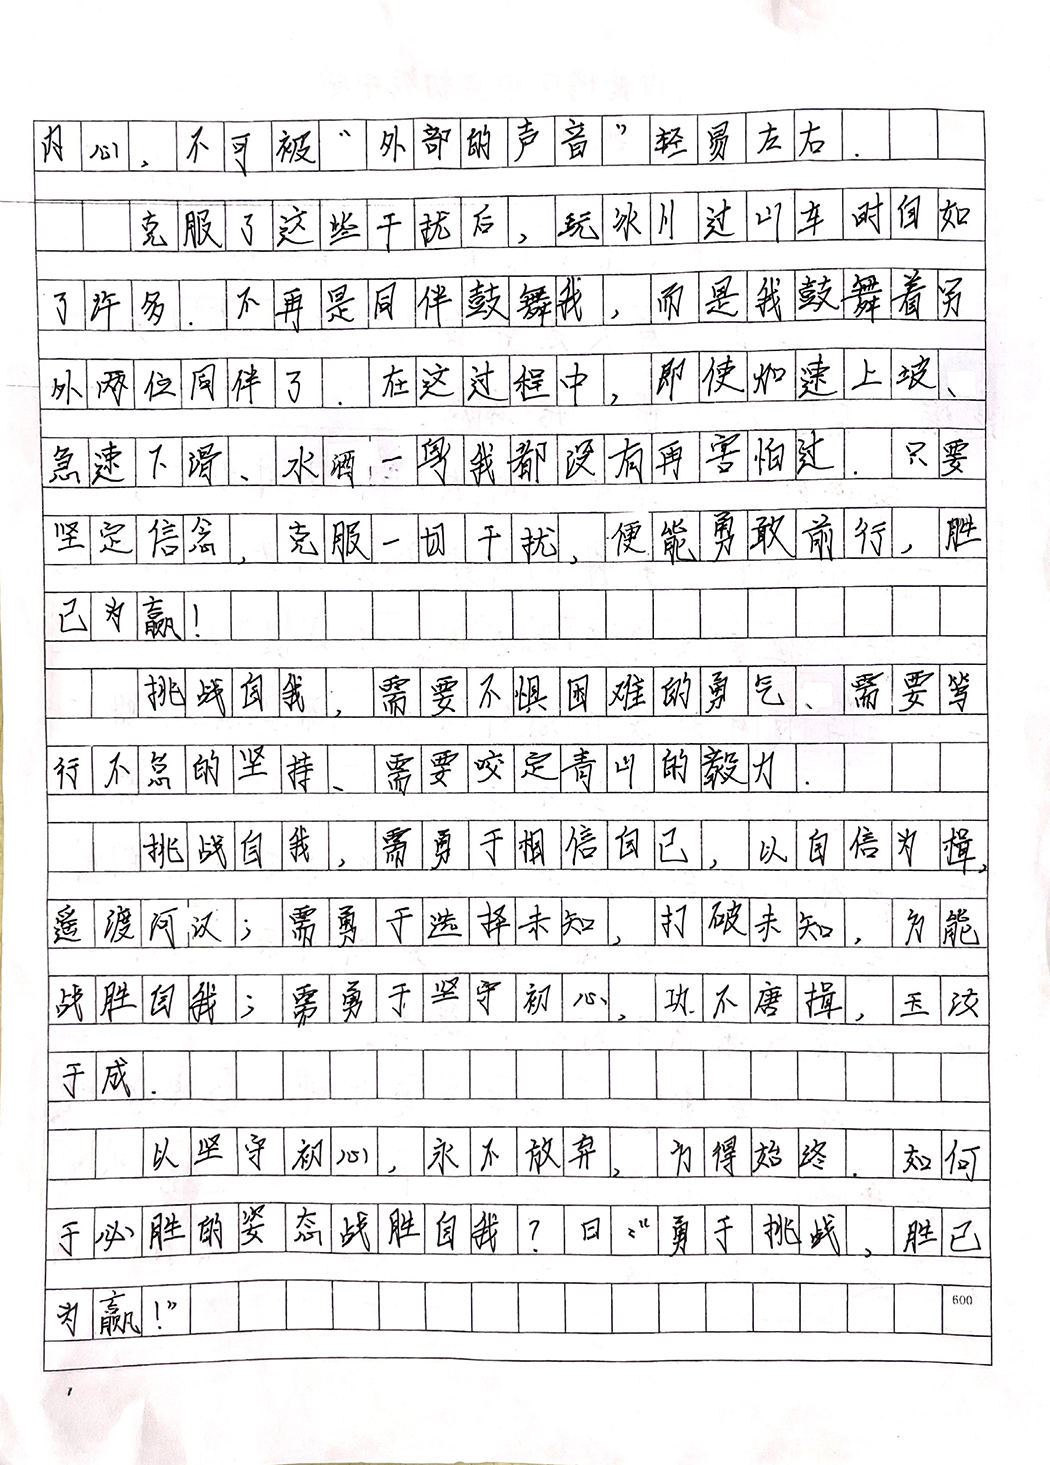 内心，不可被“外部的声音”轻易左右．
克服了这些干扰后，玩冰川过山车时自如
了许多．不再是同伴鼓舞我，而是我鼓舞着另
外两位同伴了．在这过程中，即使加速上坡、
急速下滑、水洒一身我都没有再害怕过．只要
坚定信念，克服一切干扰，便能勇敢前行，胜
己为赢！
挑战自我，需要不惧困难的勇气、需要笃
行不怠的坚持、需要咬定青山的毅力．
挑战自我，需勇于相信自己，以自信为楫，
遥渡河汉；需勇于选择未知，打破未知，方能
战胜自我；需勇于坚守初心，功不唐捐，玉汝
于成．
以坚守初心，永不放弃，方得始终．如何
于必胜的姿态战胜自我？曰：“勇于挑战，胜己
为赢！”
600